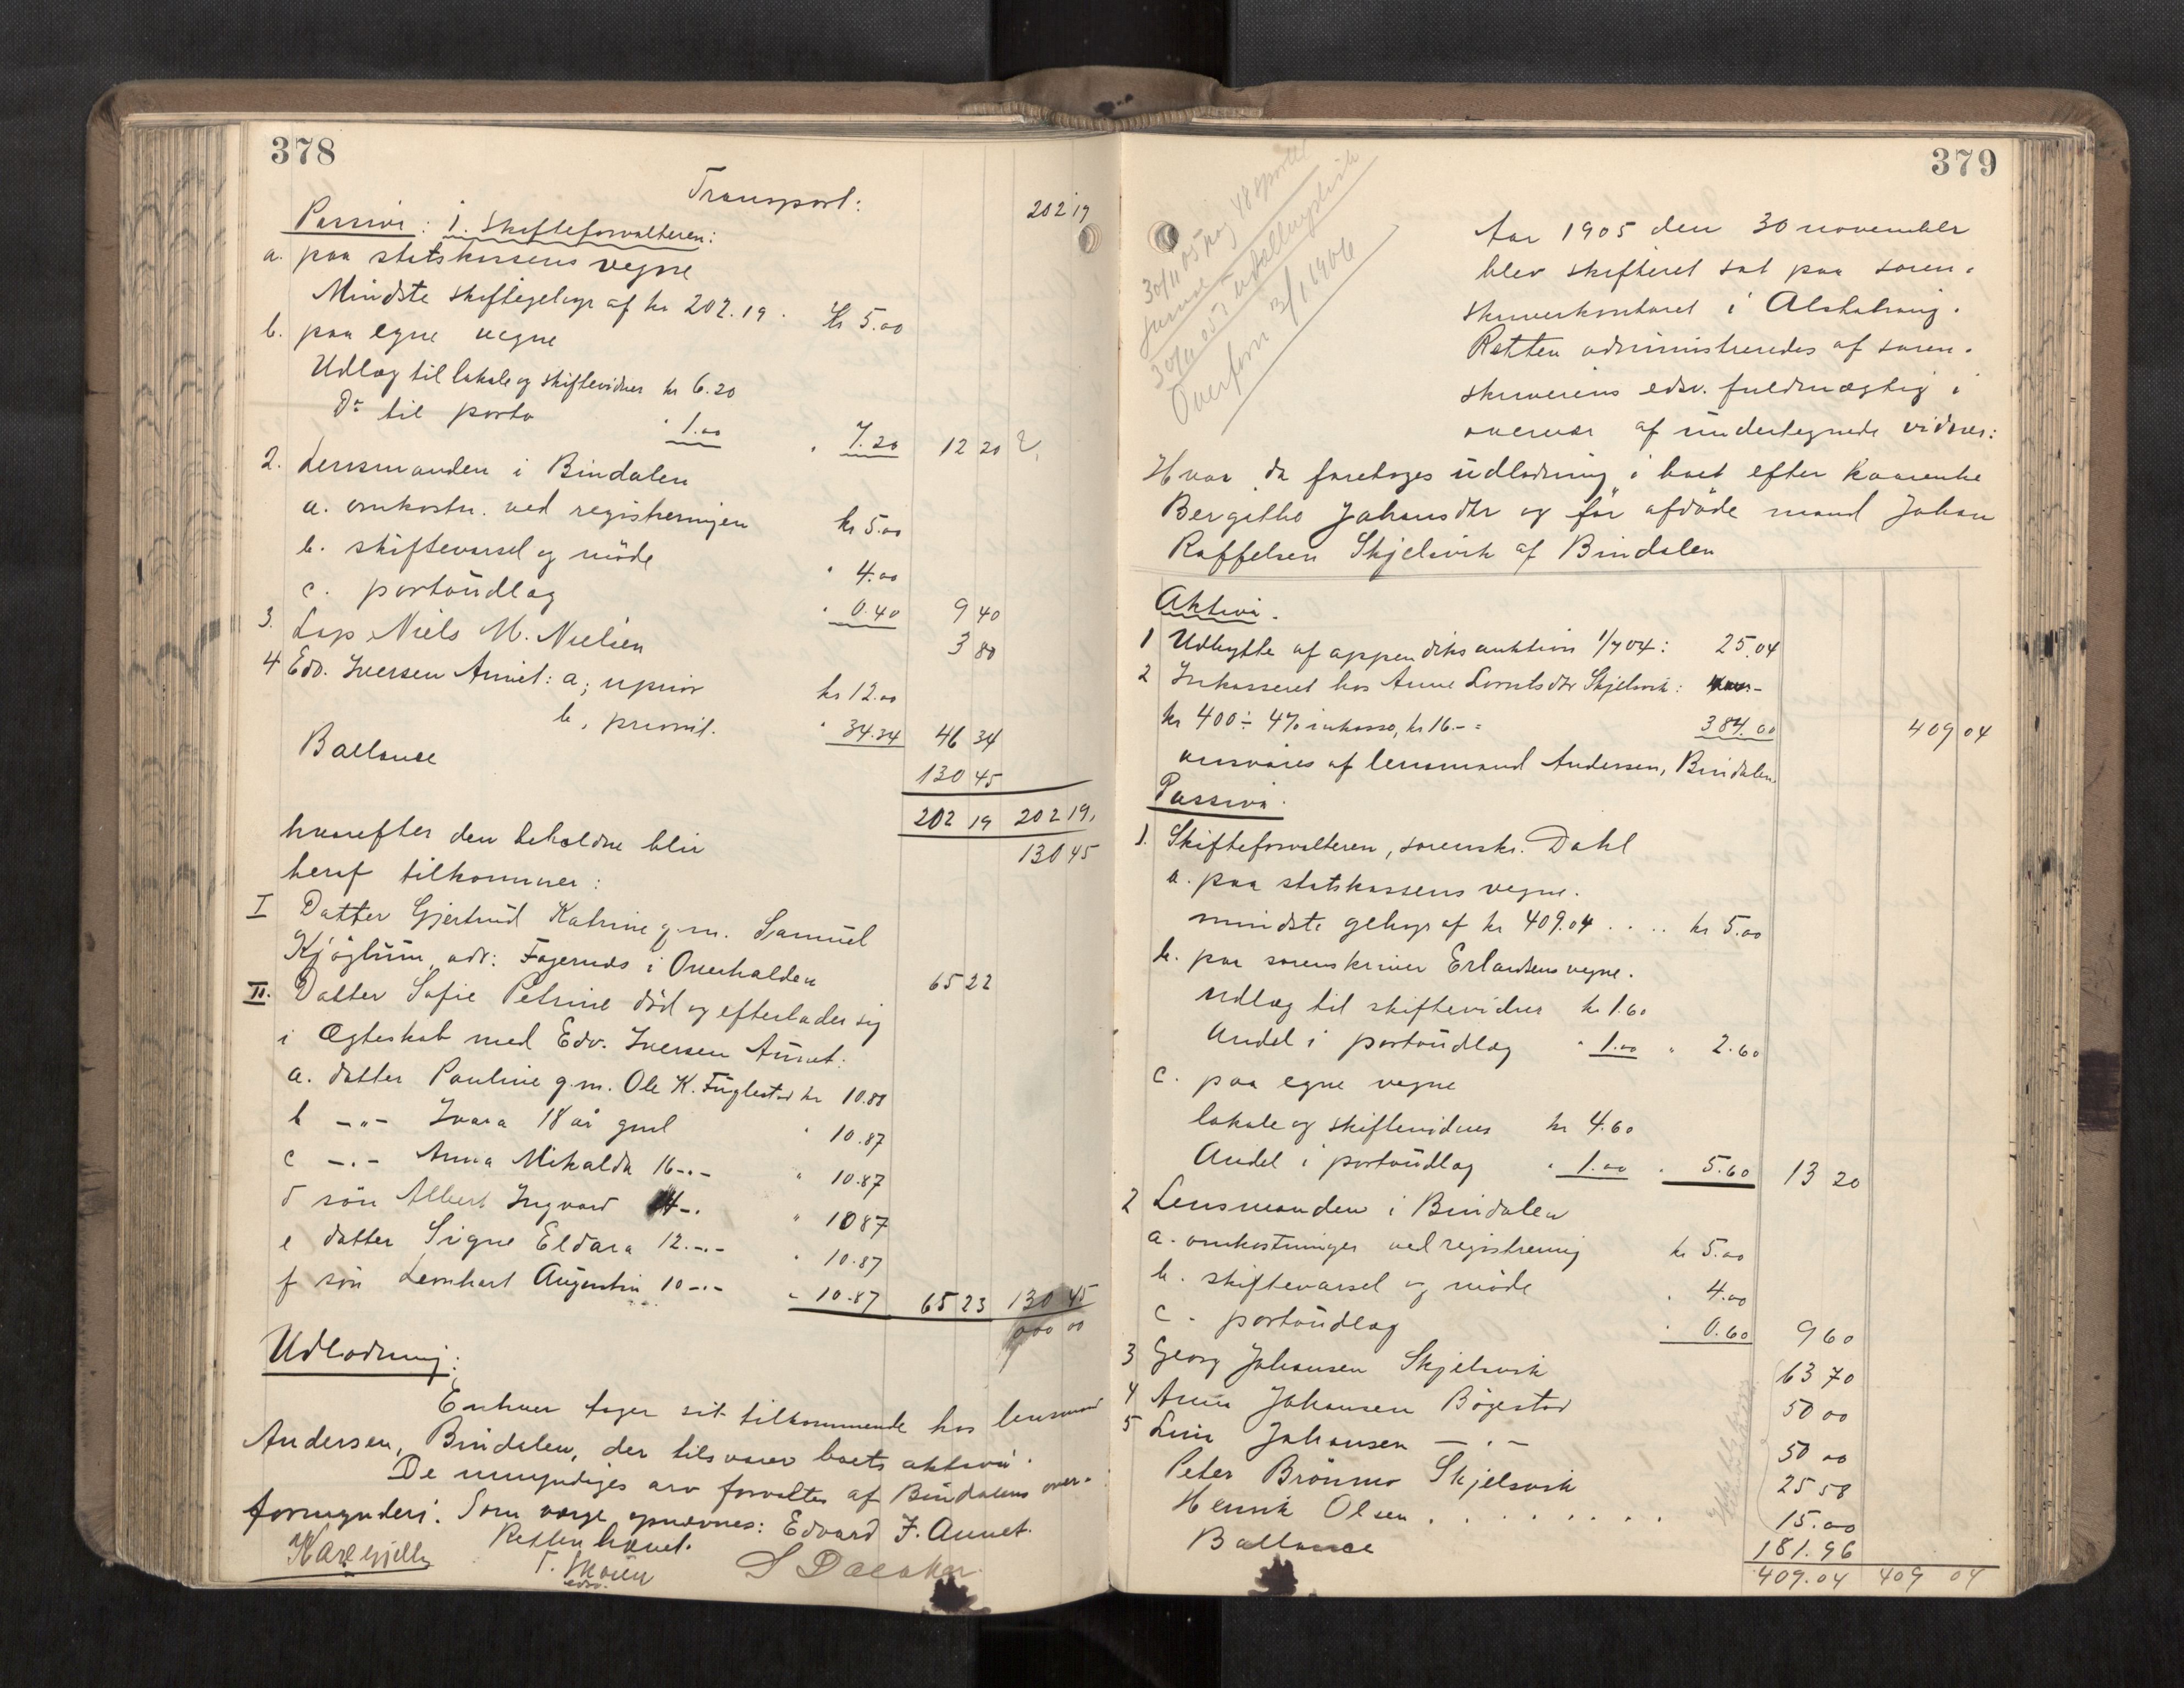 378
Transport: 202 19
Passiva: 1. Skifteforvalteren:
a. paa statskassens vegne
Mindste skiftegebyr af kr 202.19. Kr 5.00
b. paa egne vegne
Udlæg til lokale og skiftevidner kr 6.20
Do til porto " 1.00 " 7.20 12 20
2. Lensmanden i Bindalen
a. omkostn. ved registreringen kr 5.00
b. skiftevarsel og möde " 4.00
c. portoudlæg " 0.40 9 40
3. Lap Niels M. Nielsen 3 80
4 Edv. Iversen Aunet: a, uprior kr 12.00
b, privil. " 34.34 46 34
Ballance 130 45
202 19 202 19
hvorefter den beholdne blir 130 45
heraf tilkommer:
I Datter Gjertrud Katrine g.m. Samuel
Kjøglum, adr: Fagernes i Overhalden 65 22
II. Datter Sofie Petrine död og efterlader sig
i Ægteskab med Edv. Iversen Aunet:
a. datter Pauline g.m. Ole K. Fuglestad kr 10.88
b –"– Ivara 18 år gml " 10.87
c –"– Anna Mikalda 16 –"– " 10.87
d sön Albert Ingvard 14 –" " 10 87
e datter Signe Eldara 12 –"– " 10.87
f sön Leonhart Augentin 10 –"– " 10.87 65 23 130 45
000 00
Udlodning:
Enhver tager sit tilkommende hos lensmand
Andersen, Bindalen, der tilsvarer boets aktiva.
De umyndiges arv forvaltes af Bindalens over-
formynderi. Som værge opnævnes: Edvard J. Aunet.
Retten hævet.
edsv.
379
30/11 05
Overført 3/1 1906
Aar 1905 den 30 november
blev skifteret sat paa soren-
skriverkontoret i Alstahaug.
Retten administreredes af soren-
skriverens edsv. fuldmægtig i
overvær af undertegnede vidner:
Hvor da foretoges udlodning i boet efter kaarenke
Bergithe Johansdtr og för afdöde mand Johan
Raffelsen Skjelsvik af Bindalen
Aktiva.
1 Udbytte af appendiks auktion 1/7 04: 25.04
2 Inkasseret hos Anne Lorntsdtr Skjelsvik:
kr 400 ÷ 4% inkasso, kr 16.– = 384.00 409 04
ansvares af lensmand Andersen, Bindalen.
Passiva.
1. Skifteforvalteren, sorenskr. Dahl
a. paa statskassens vegne.
mindste gebyr af kr 409.04 . . . . kr 5.00
b. paa sorenskriver Erlandsens vegne.
udlæg til skiftevidner kr 1.60
Andel i portoudlæg " 1.00 " 2.60
c. paa egne vegne
lokale og skiftevidner kr 4.60
Andel i portoudlæg " 1.00 " 5.60 13 20
2 Lensmanden i Bindalen
a. omkostninger ved registrering kr 5.00
b. skiftevarsel og möde " 4.00
c. portoudlæg " 0.60 9 60
3 Georg Johansen Skjelsvik 63 70
4 Anna Johansen Bögestad 50 00
5 Lina Johansen –"– 50 00
Peter Brönmo Skjelsvik 25 58
Henrik Olsen . . . . . . . . 15.00
Ballance 181.96
409.04 409 04